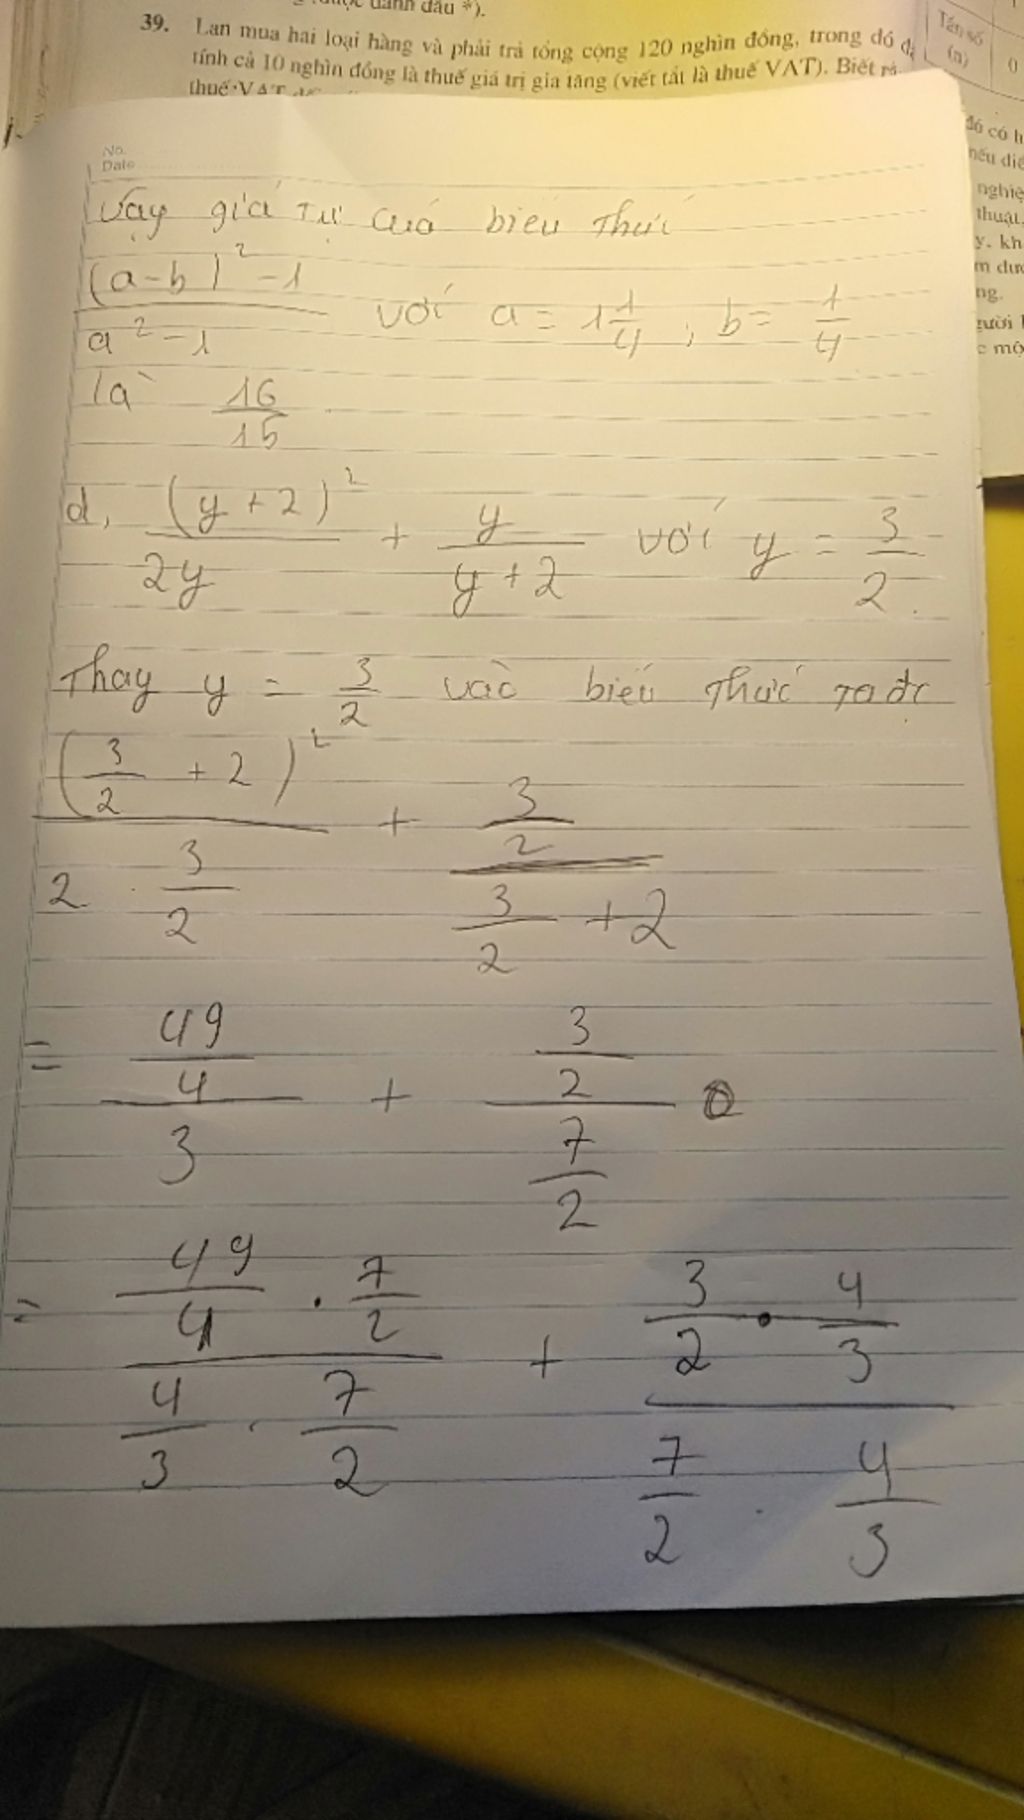 39. Lan mua hai loại hàng và phải trả tổng cộng 120 nghìn đồng, trong đó đ
tính cả 10 nghìn đồng là thuế giá trị gia tăng (viết tắt là thuế VAT). Biết
thuế VAT
Tần số
(n)
0
đó có h
nếu
nghiệ
thuật,
y. kh
m đượ
ng.
gười
c mộ
No.
Date
Vậy giá trị của biểu thức
(a-b)² -1 / a² -1 với a = 1 1/4 , b = 1/4
là 16/15
d, (y+2)² / 2y + y / y+2 với y = 3/2
Thay y = 3/2 vào biểu thức ta đc
(3/2 + 2)² / 2 . 3/2 + 3/2 / 3/2 + 2
= 49/4 / 3 + 3/2 / 7/2
= 49/4 . 7/2 / 4/3 . 7/2 + 3/2 . 4/3 / 7/2 . 4/3